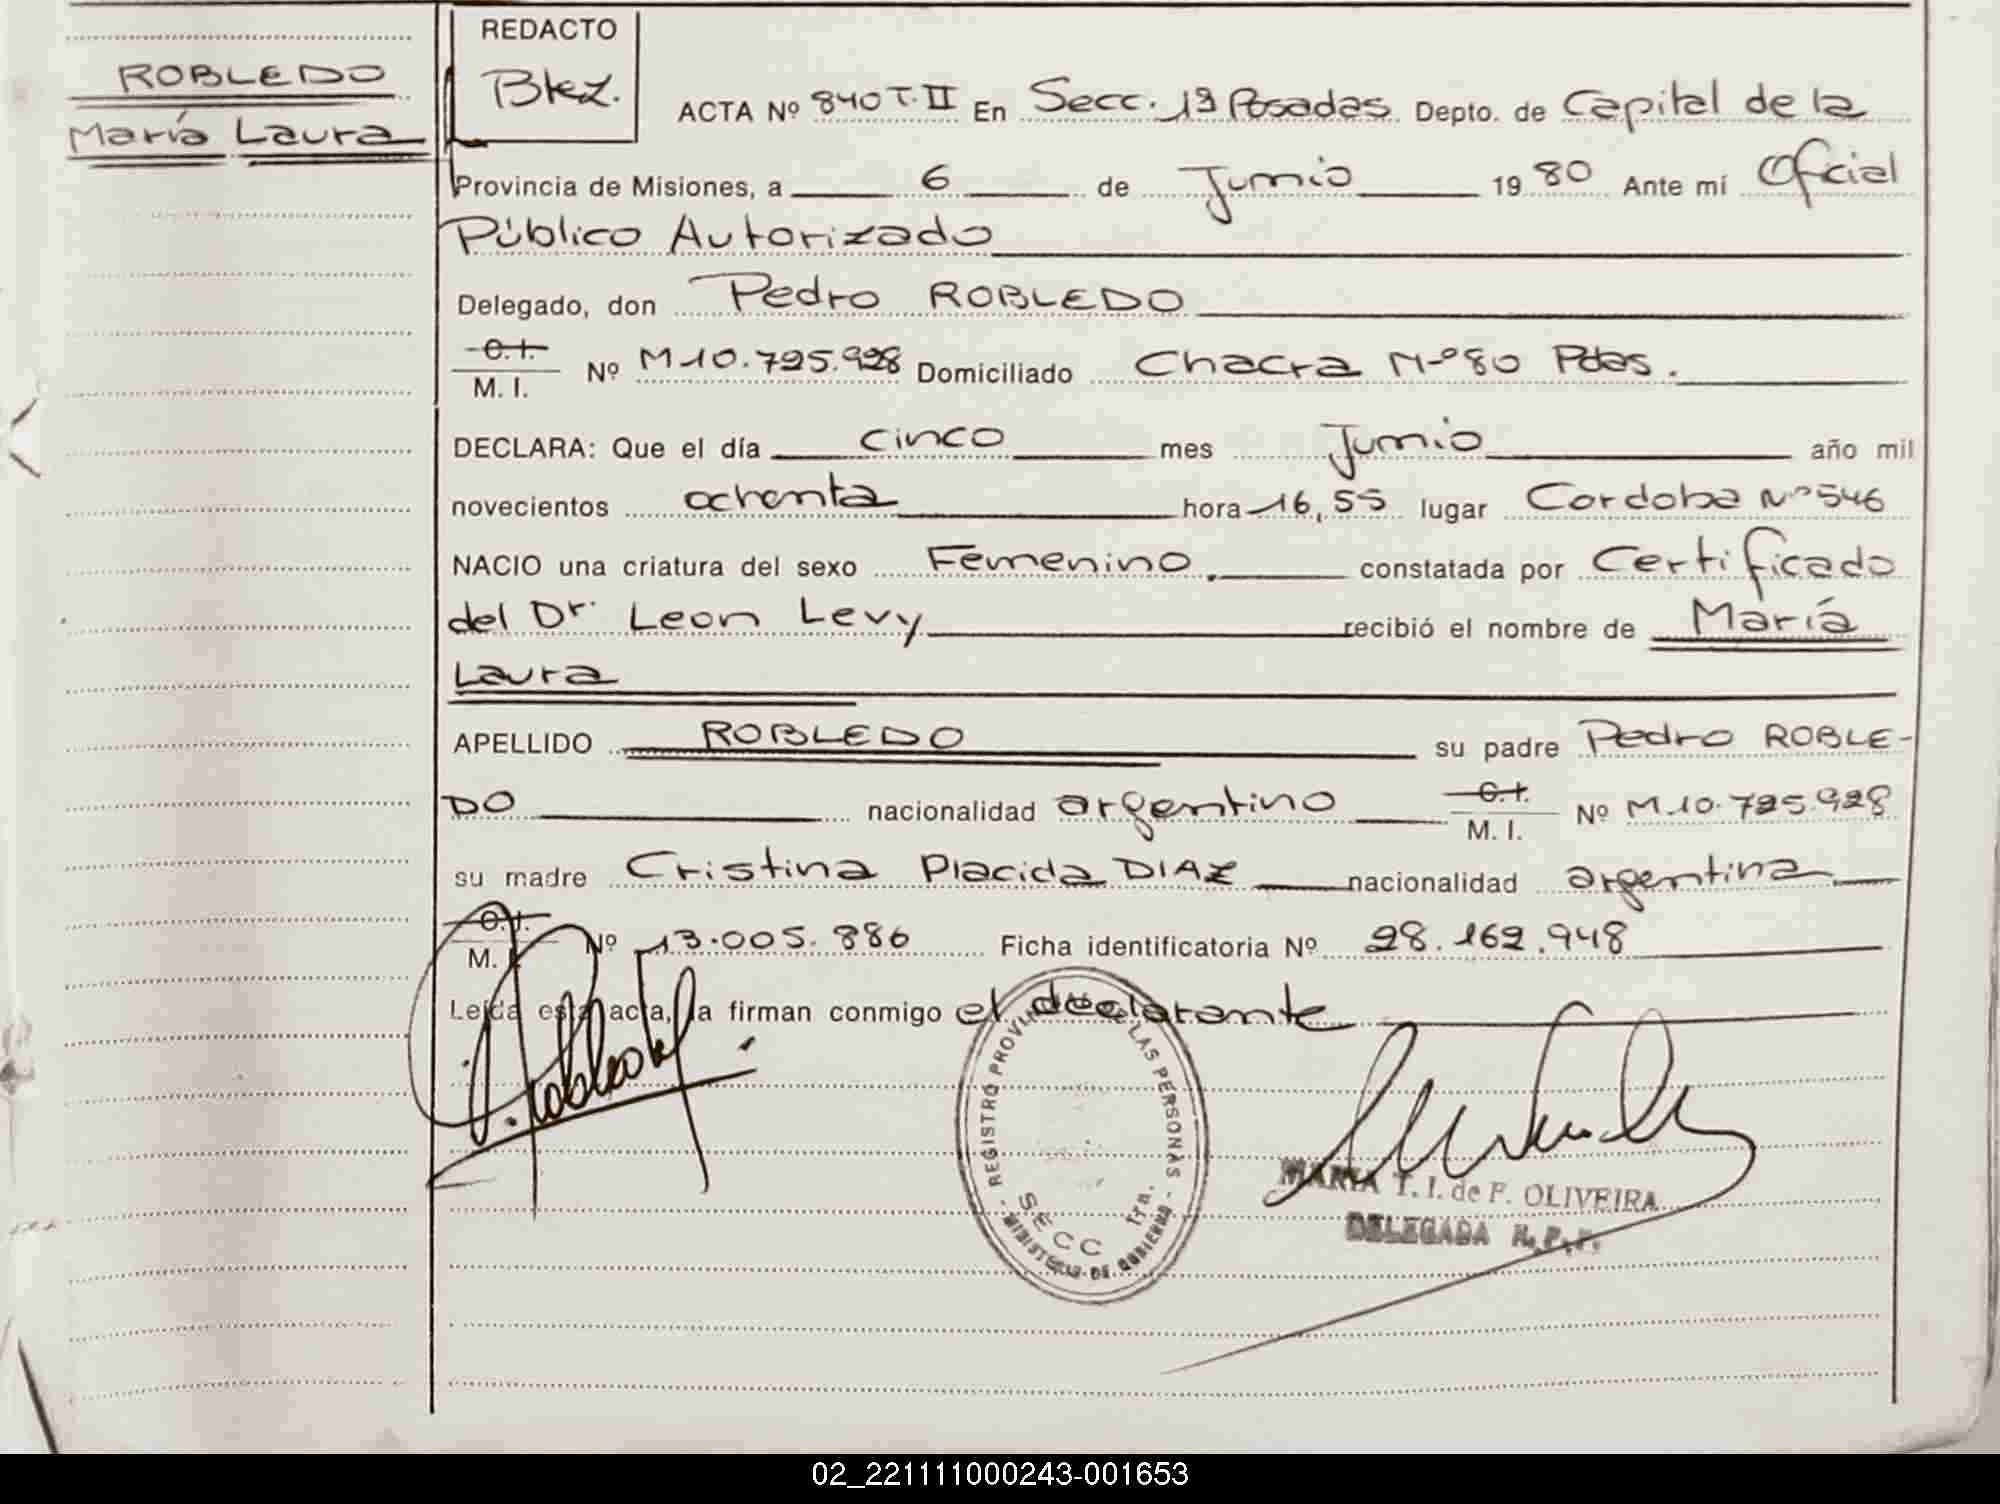 ROBLEDO
María Laura
REDACTO
Btez.
ACTA Nº 840 T. II En Secc. 1ª Posadas Depto. de Capital de la
Provincia de Misiones, a 6 de Junio 1980 Ante mí Oficial
Público Autorizado
Delegado, don Pedro ROBLEDO
C. I.
M. I. Nº M 10.725.928 Domiciliado Chacra Nº 80 Pdas.
DECLARA: Que el día cinco mes Junio año mil
novecientos ochenta hora 16,55 lugar Cordoba Nº 546
NACIO una criatura del sexo Femenino. constatada por Certificado
del Dr. Leon Levy recibió el nombre de María
Laura
APELLIDO ROBLEDO su padre Pedro ROBLE-
DO nacionalidad argentino C. I.
M. I. Nº M.10.725.928
su madre Cristina Placida DIAZ nacionalidad argentina
C. I.
M. I. Nº 13.005.886 Ficha identificatoria Nº 28.162.948
Leída esta acta, la firman conmigo el declarante
REGISTRO PROVINCIAL DE LAS PERSONAS
SECC 1ra.
MINISTERIO DE GOBIERNO
MARIA T. I. de F. OLIVEIRA
DELEGADA R.P.P.
02_221111000243-001653